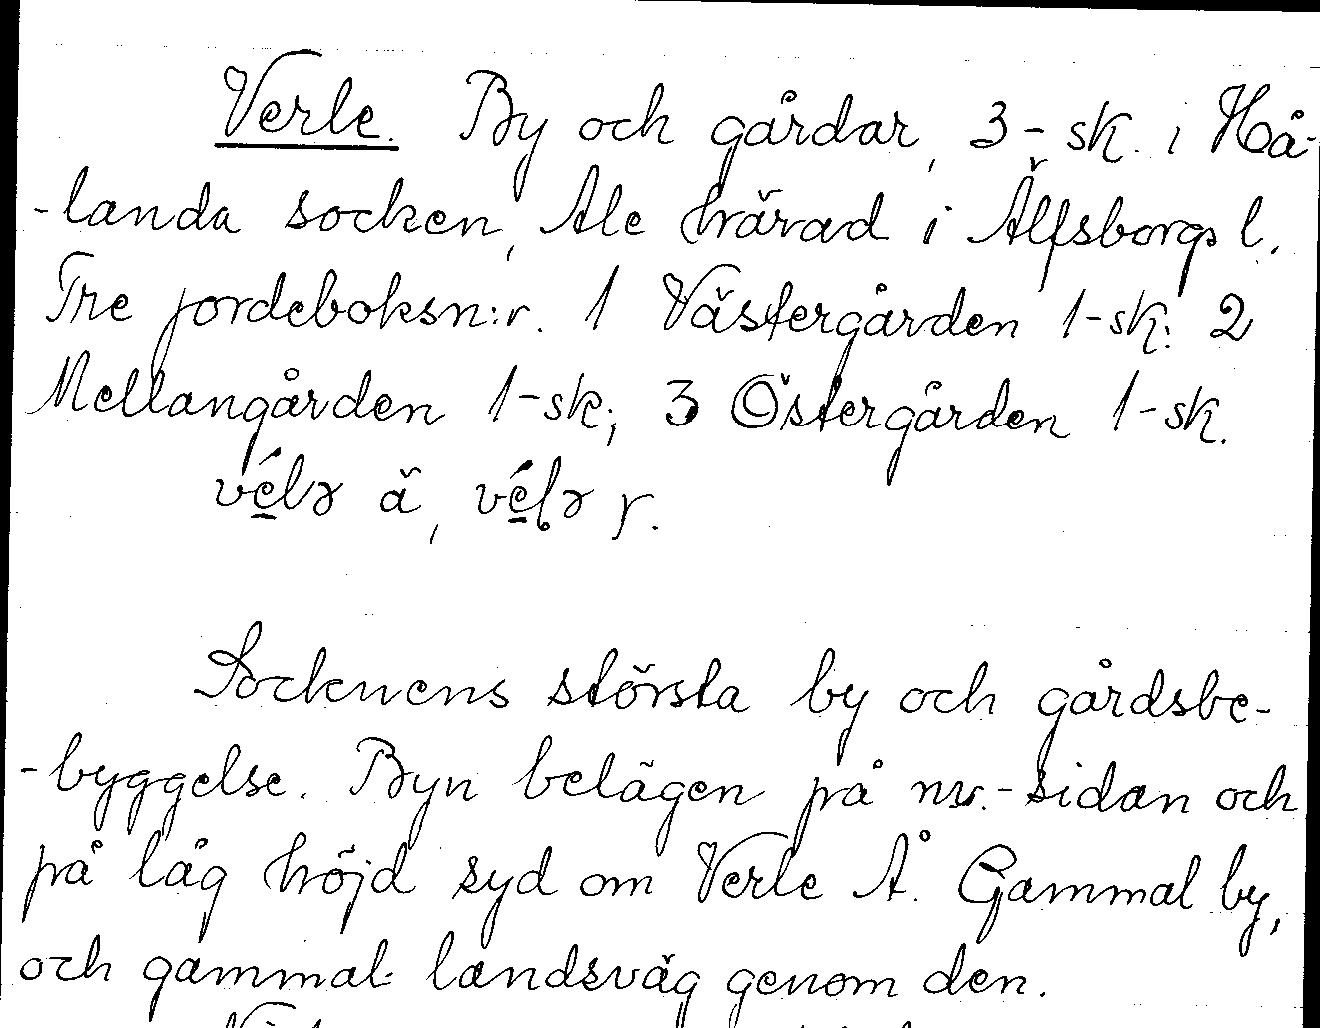 Verle. By och gårdar, 3-sk. i Hå-
-landa socken, Ale härad i Älfsborgs l.
Tre jordeboksn:r. 1 Västergården 1-sk; 2
Mellangården 1-sk; 3 Östergården 1-sk.
vélə ä, véḷə y.
Socknens största by och gårdsbe-
-byggelse. Byn belägen på nv.-sidan och
på låg höjd syd om Verle Å. Gammal by,
och gammal landsväg genom den.